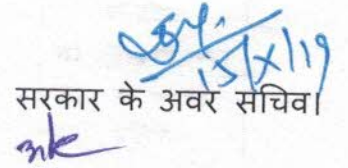 15/X/19
सरकार के अवर सचिव।